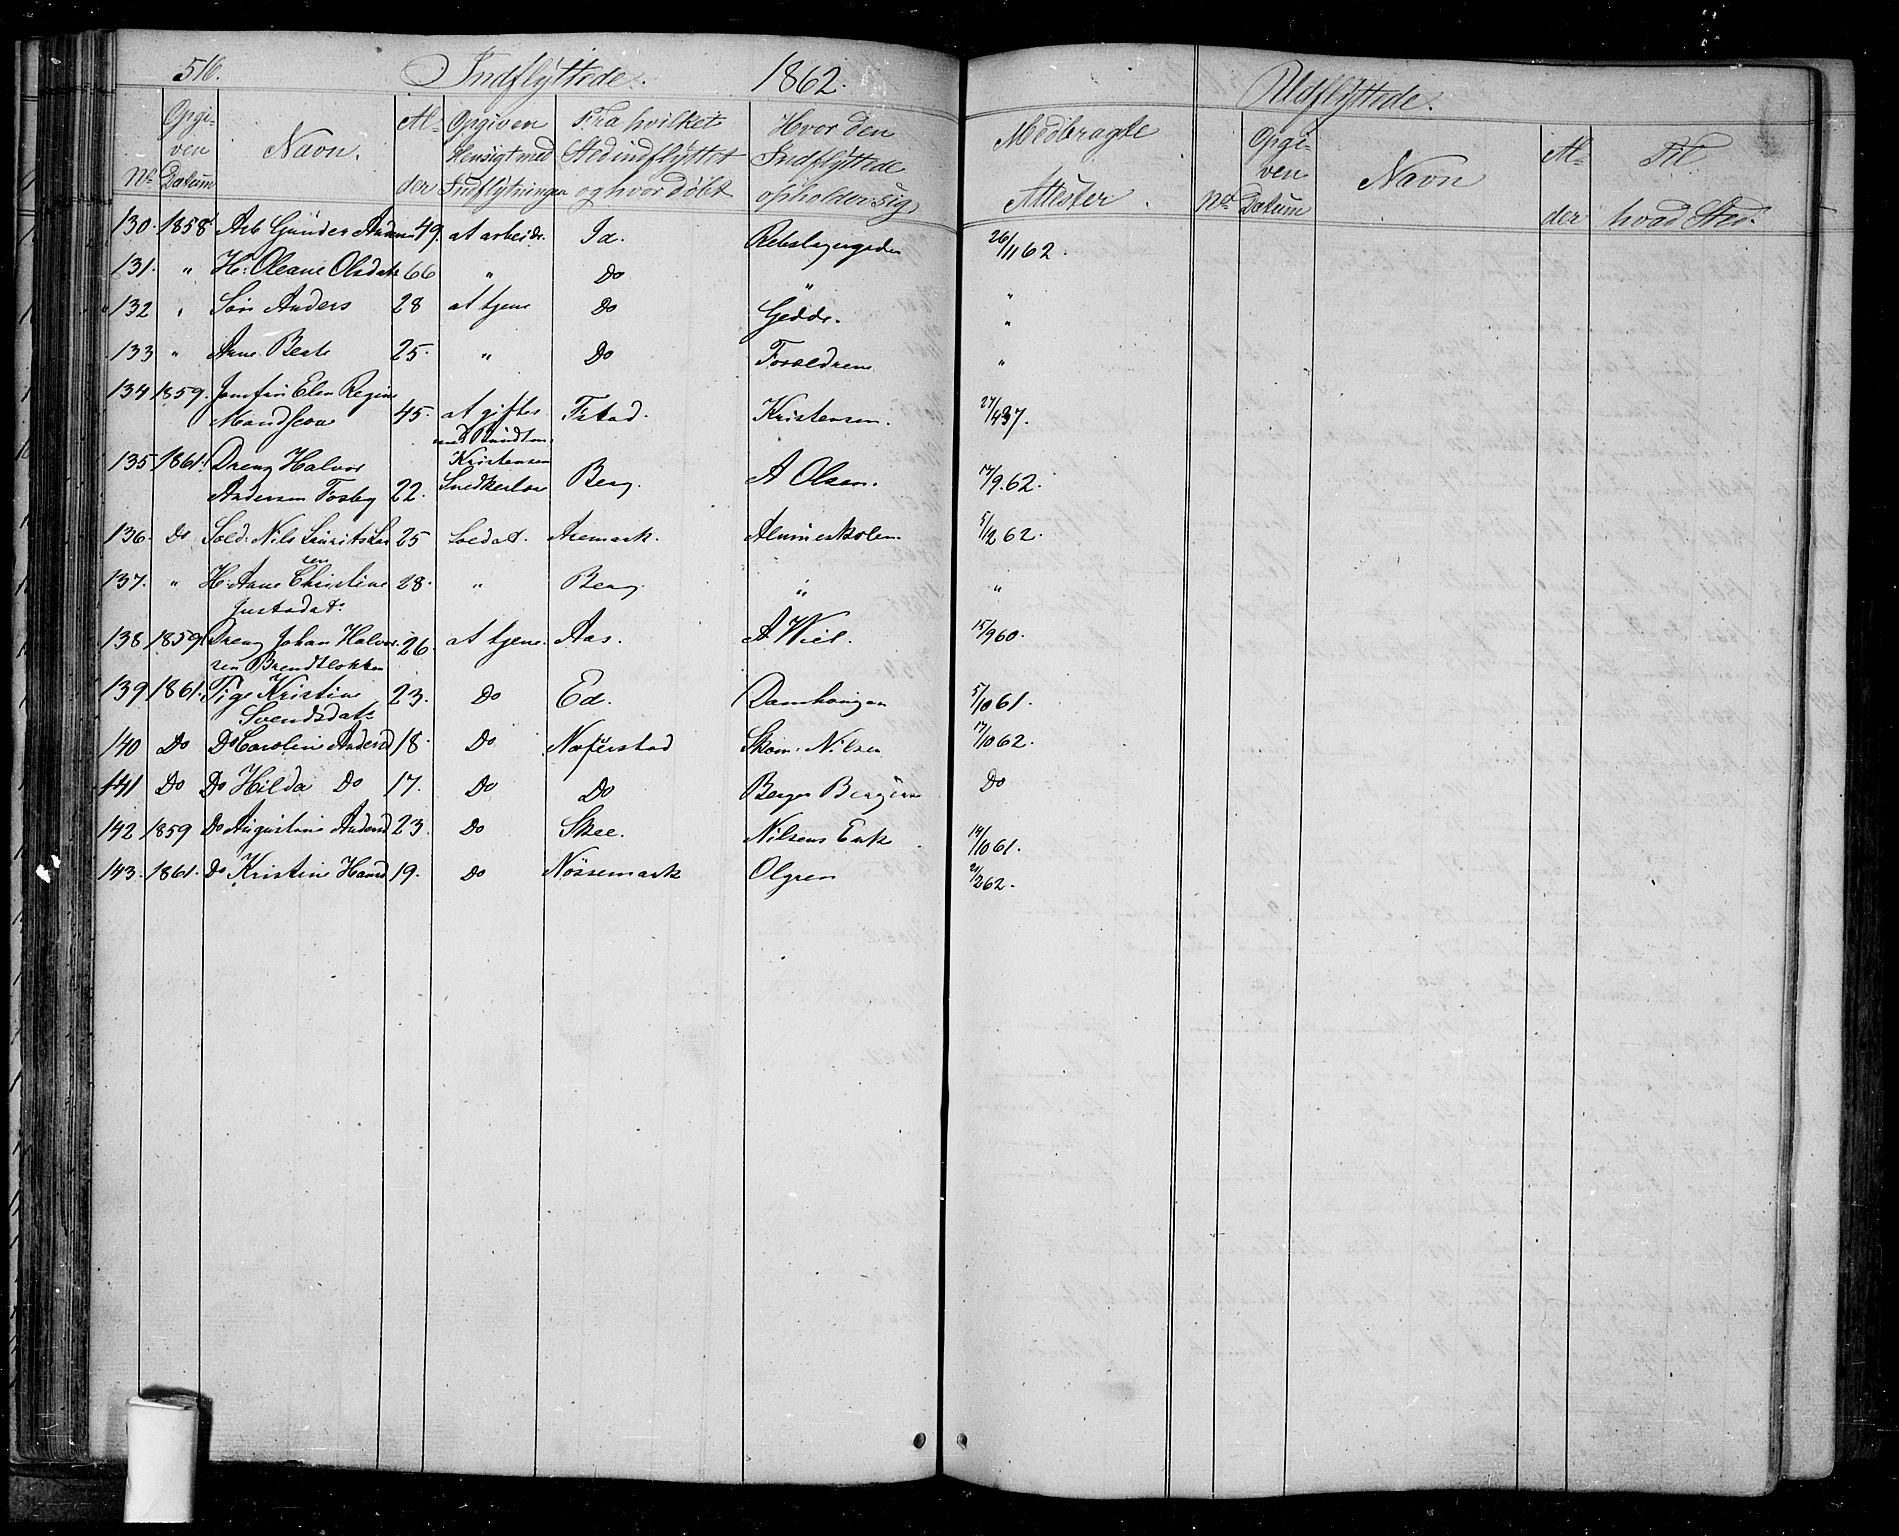 516. Indflyttede. 1862. Udflyttede.
No Opgiven Datum Navn. Alder Opgiven Hensigt med Indflytningen Fra hvilket Sted indflyttet og hvor döbt Hvor den Indflyttede opholder sig Medbragte Attester. No Opgiven Datum Navn Alder Til hvad Sted.
130. 1858 Arb Gunder Anders 49. at arbeide Id. Rebslagergaden 26/11 62.
131. " H: Oleane Olsdatr 66 " Do "
132 " Sön Anders 28 at tjene Do Gedde. "
133 " Ane Beate 25. " Do Foreldrene "
134 1859. Jomfru Elen Regine
45. at giftes Tistad. Kristensen. 27/4 37.
med
135 1861. Dreng Halvor Kristensen
Andersen Tosby 22. Snedkerlære Berg. A Olsen. 17/9. 62.
136. Do Sold. Nils Lauritsen 25 Soldat. Aremark. Almueskolen 5/12 62.
137. " H: Ane Christine 28. " Berg. " "
Justsdat:
138 1859. Dreng Johan Halvor 26. at tjene. Aas. A Wiel. 15/9 60.
sen Brendtlökken
139 1861. Pige Kristine 23. Do Ed. Damhaugen 5/10 61.
Svendsdatr
140 Do Do Caroline Andersd 18. Do Näferstad Skom. Nilsen 17/10 62.
141 Do Do Hilda Do 17. Do Do Berger Do
142 1859 Do Augustine Andersd 23. Do Skee. Nilsens Enke 14/10 61.
143. 1861. Do Kristine Hansd 19. Do Nössemark Olgren 21/2 62.